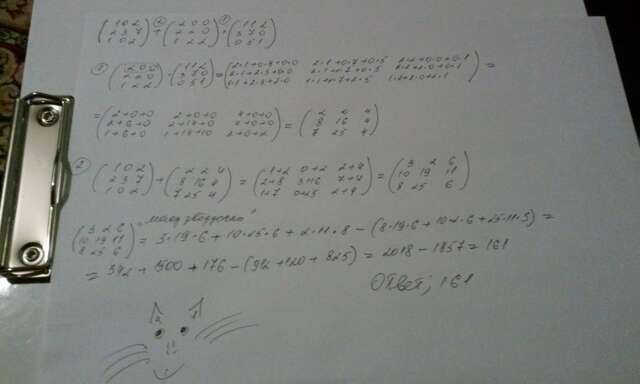 (1 0 2 / 2 3 7 / 1 0 2) + (2 0 0 / 2 2 0 / 1 2 2) · (1 1 2 / 3 7 0 / 0 5 1)
1) (2 0 0 / 2 2 0 / 1 2 2) · (1 1 2 / 3 7 0 / 0 5 1) = (2·1+0·3+0·0 2·1+0·7+0·5 2·2+0·0+0·1 / 2·1+2·3+0·0 2·1+2·7+0·5 2·2+2·0+0·1 / 1·1+2·3+2·0 1·1+2·7+2·5 1·2+2·0+2·1) =
= (2+0+0 2+0+0 4+0+0 / 2+6+0 2+14+0 4+0+0 / 1+6+0 1+14+10 2+0+2) = (2 2 4 / 8 16 4 / 7 25 4)
2) (1 0 2 / 2 3 7 / 1 0 2) + (2 2 4 / 8 16 4 / 7 25 4) = (1+2 0+2 2+4 / 2+8 3+16 7+4 / 1+7 0+25 2+4) = (3 2 6 / 10 19 11 / 8 25 6)
(3 2 6 / 10 19 11 / 8 25 6) "метод звездочки" = 3·19·6 + 10·25·6 + 2·11·8 - (8·19·6 + 10·2·6 + 25·11·3) =
= 342 + 1500 + 176 - (912 + 120 + 825) = 2018 - 1857 = 161
Ответ; 161